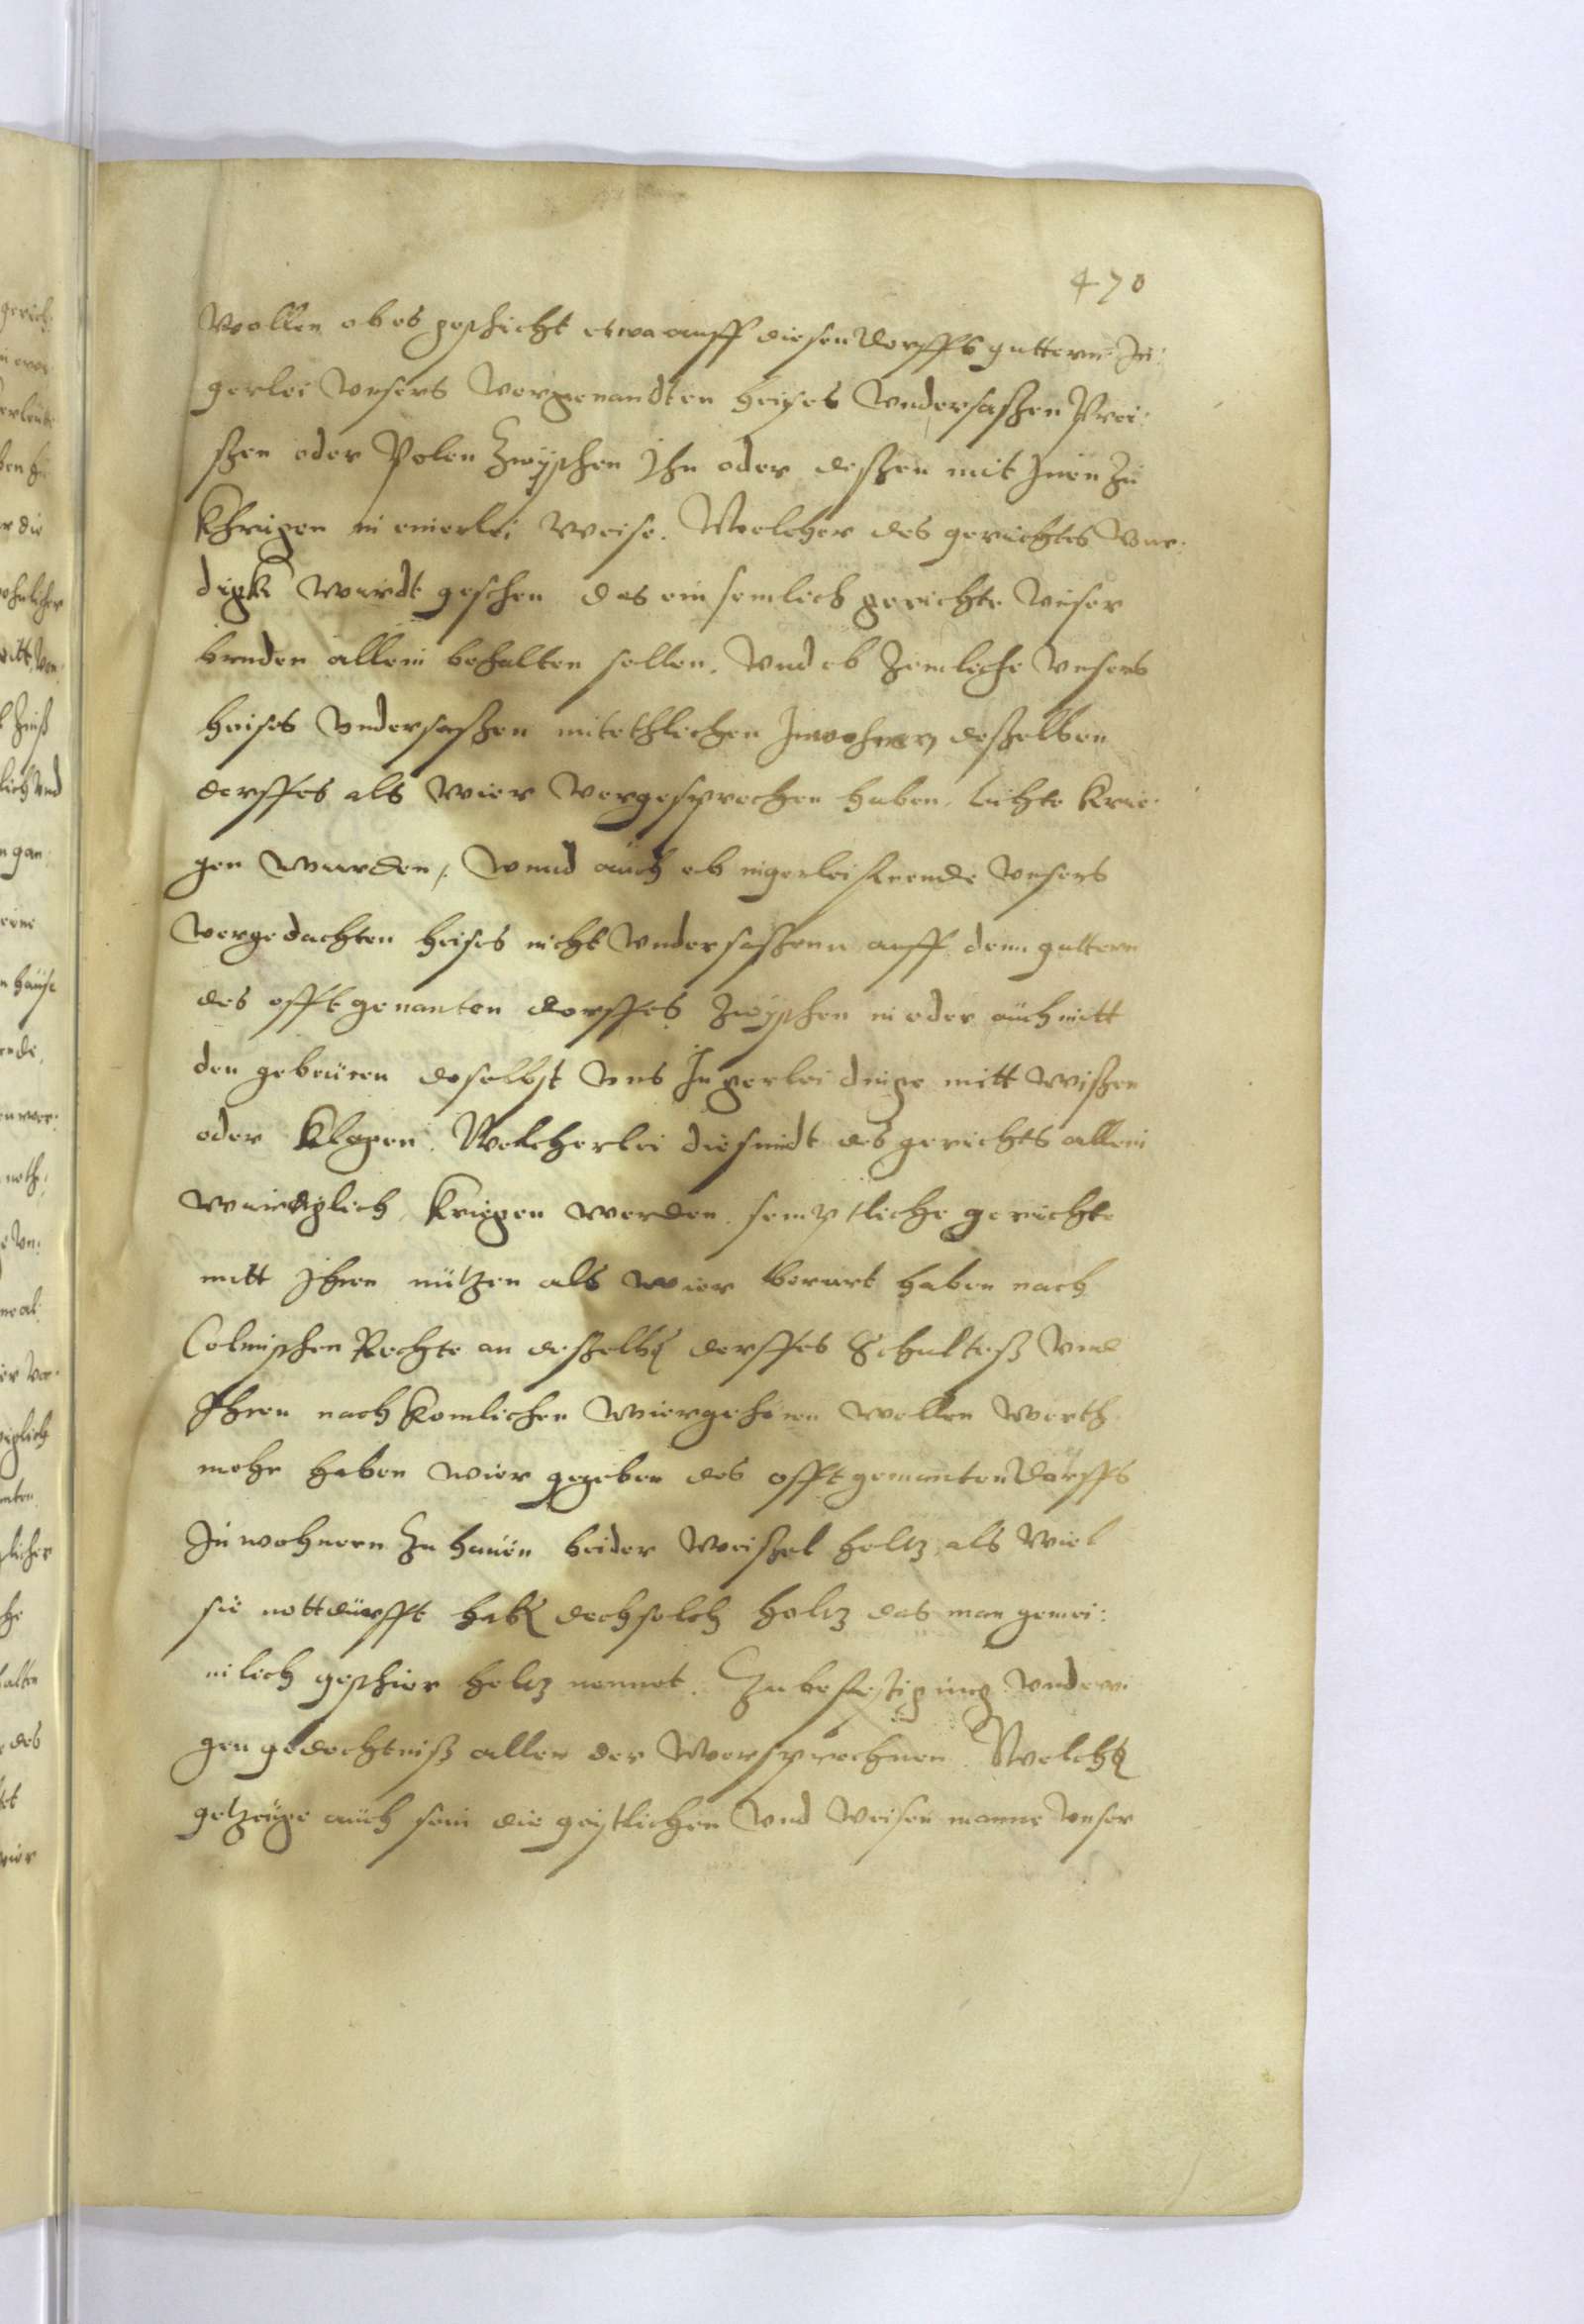 470
Wollen ob es geschicht etwa auff diesen dorffs guttern In:
gerlei unsers vorgenandten heises Undersaßen Prei:
ßen oder Polen Zwyschen Ihn oder deßen mit Inen zu
Khrigen in einerlei weise. Welcher des gerichtes Wur:
digk wurdt geschen das ein semlich gerichte unser
bruder allein behalten sollen. Und ob zemliche unsers
heises Undersaßen mit ethlichen Inwohnern deßelben
dorffes als wier vorgesprochen haben, lichte krie:
gen wurden, Unnd auch ob ingerlei fremde unsers
vorgedachten heises nicht Undersaßenn auff denn guttern
des offtgenanten dorffes Zwyschen in oder auch mitt
den gebauren doselbst umb Ingerlei dinge mitt wißen
oder Klagen. Welcherlei die sindt des gerichts allein
wurdiglich kriegen werden. semptliche gerichte
mitt Ihren nützen als wier berurt haben nach
Colmischen Rechte an deßelben dorffes Schulteß und
Ihren nachkomlichen wier gehören wollen Worth
mehr haben wier gegeben des offtgenanten dorffs
Inwohnern Zu hauen beider Weißel holtz als viel
sie nottdurfft haben doch solch holtz das man gemei:
nilich geschier holtz nennet. Zu befestigung und ewi
gen gedechtniß allen der Worsprochnen. Welche
getzeuge auch sein die geistlichen Und Weisen manne unser